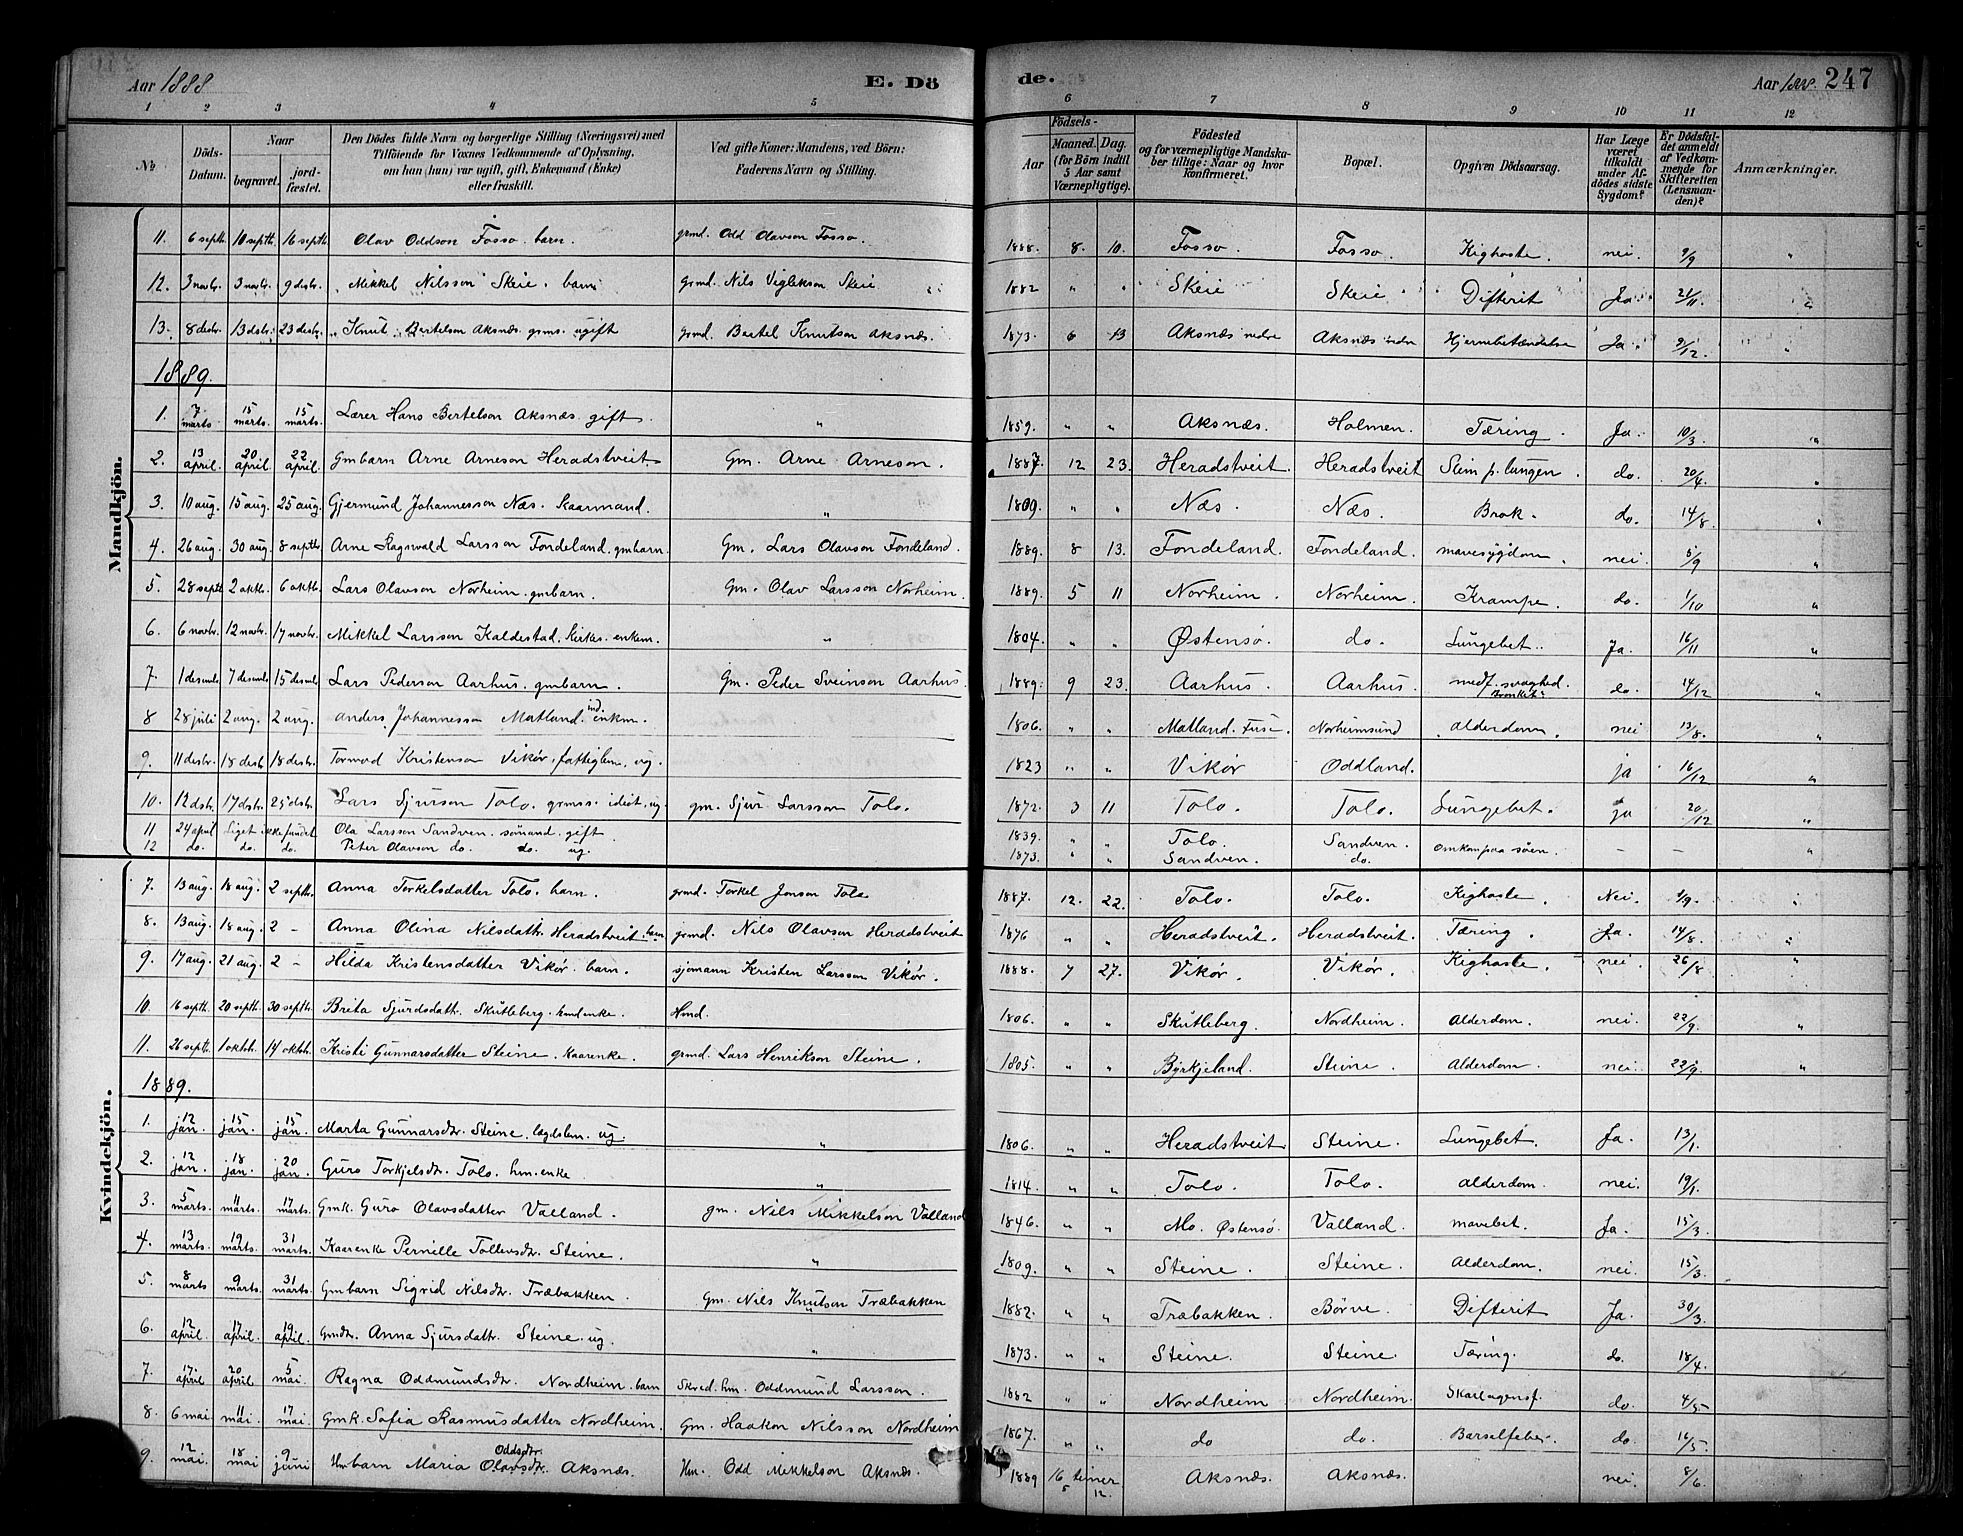 Aar 1888. E. Dö de. Aar 1888. 247
1 2 3 4 5 6 7 8 9 10 11 12
No Döds-Datum. Naar begravet. jordfæstet. Den Dödes fulde Navn og borgerlige Stilling (Næringsvei) med Tilföiende for Voxnes Vedkommende af Oplysning, om han (hun) var ugift, gift, Enkemand (Enke) eller fraskilt. Ved gifte Koner: Mandens, ved Börn: Faderens Navn og Stilling. Födsels- Aar Maaned. Dag. (for Börn indtil 5 Aar samt Værnepligtige). Födested og for værnepligtige Mandskaber tillige: Naar og hvor konfirmeret. Bopæl. Opgiven Dödsaarsag. Har Læge været tilkaldt under Afdödes sidste Sygdom? Er Dödsfaldet anmeldt af Vedkommende for Skifteretten (Lensmanden)? Anmærkninger.
Mandkjön.
11. 6 septb. 10 septb. 16 septb. Olav Oddson Fosso. barn. grmd. Odd Olavson Fosso. 1888. 8. 10. Fosso. Fosso. Kighoste. nei. 9/9 "
12. 3 novbr. 3 novbr. 9 desbr. Mikkel Nilsson Skeie. barn grmd. Nils Viglekson Skeie 1882 " " Skeie Skeie Difterit Ja 21/11 "
13. 8 desbr. 13 dsbr. 23 desbr. Knut Bertelson Aksnæs grms. ugift grmd. Bertel Knutson Aksnæs. 1873. 6 13 Aksnæs nedre Aksnæs nedre Hjernebetændelse Ja 9/12 "
1889.
1. 7 marts. 15 marts. 15 marts. Lærer Hans Bertelson Aksnæs. gift. " 1859. " " Aksnæs. Holmen. Tæring. Ja. 10/3 "
2. 13 april. 20 april. 22 april. Gmbarn Arne Arneson Heradstveit. Gm. Arne Arneson. 1887 12 23. Heradstveit. Heradstveit Slim p. lungen. do. 20/4 "
3. 10 aug. 15 aug. 25 aug. Gjermund Johannesson Næs. Kaarmand. " 1809. " " Næs. Næs. Brok. do. 14/8 "
4. 26 aug. 30 aug. 8 septb. Arne Ragnvald Larsson Fondeland. gmbarn. Gm. Lars Olavson Fondeland. 1889. 8 13. Fondeland. Fondeland. mavesygdom. nei. 5/9 "
5. 28 septb. 2 oktb. 6 oktb. Lars Olavson Norheim. gmbarn. Gm. Olav Larsson Norheim. 1889. 5 11 Norheim. Norheim. Krampe. do. 1/10 "
6. 6 novbr. 12 novbr. 17 novbr. Mikkel Larsson Kaldestad. Kirkes. enkem. " 1804. " " Østensø. do. Lungebet.. Ja. 16/11 "
7. 1 desmb. 7 desmb. 15 desmb. Lars Pederson Aarhus. gmbarn. Gm. Peder Sveinson Aarhus. 1889. 9 23. Aarhus. Aarhus. medf. svaghed. Bronkit. do. 14/12 "
8 28 juli 2 aug. 2 aug. Anders Johannesson Matland. ind. enkm. 1806. " " Matland. Fuse. Norheimsund Alderdom. nei 13/8. "
9. 11 desbr. 18 desb. 18 desb. Tormod Kristenson Vikør. fattiglem. ug. 1823 " " Vikør Oddland. ja 16/12 "
10. 12 dsbr. 17 dsbr. 25 dsbr. Lars Sjurson Tolo. grmss. idiot. ug. gm. Sjur Larsson Tolo. 1872. 3 11 Tolo. Tolo. Lungebet. ja 20/12 "
11 24 april Liget ikke fundet Ola Larsson Sandven. sømand. gift. 1839. " " Tolo. Sandven. Omkom paa søen. - - "
12 do. do. do. Peter Olavson do. do. ug. 1873. " " Sandven. do.
Kvindekjön.
7. 13 aug. 18 aug. 2 septb. Anna Torkelsdatter Tolo. barn. grmd. Torkel Jonson Tolo 1887. 12. 22. Tolo. Tolo. Kighoste. Nei. 1/9. "
8. 13 aug. 18 aug. 2 - Anna Olina Nilsdatr. Heradstveit. barn grmd. Nils Olavson Heradstveit 1876 " " Heradstveit. Heradstveit. Tæring. Ja. 14/8. "
9. 17 aug. 21 aug. 2 - Hilda Kristensdatter Vikør. barn. sjømann Kristen Larsson Vikør. 1888. 7 27. Vikør. Vikør. Kighoste. nei. 26/8 "
10. 16 septb. 20 septb. 30 septb. Brita Sjurdsdatr. Skutleberg. hmd enke. Hmd. 1806. " " Skutleberg. Nordheim. Alderdom. nei. 22/9. "
11. 26 septb. 1 oktbr. 14 oktbr. Kristi Gunnarsdatter Steine. kaarenke. grmd. Lars Henrikson Steine. 1805. " " Byrkjeland. Steine. Alderdom. nei. 22/9. "
1889.
1. 12 jan. 15 jan. 15 jan. Marta Gunnarsdtr. Steine. lægdslem. ug. " 1806. " " Heradstveit Steine. Lungebet. Ja. 13/1.
2. 12 jan. 18 jan. 20 jan. Guro Torkjelsdtr. Tolo. hm.enke " 1814. " " Tolo. Tolo. Alderdom. nei. 19/1.
3. 5 marts. 11 marts. 17 marts. Gmk. Guro Olavsdatter Valland. gm. Nils Mikkelson Valland 1846. " " Mo. Østensø. Valland. mavebet. Ja. 15/3.
4. 13 marts. 19 marts. 31 marts. Kaarenke Pernille Tollevsdtr. Steine. " 1809. " " Steine. Steine. Alderdom. nei. 15/3.
5. 8 marts 9 marts. 31 marts. Gmbarn Sigrid Nilsdtr. Træbakken. Gm. Nils Knutson Træbakken 1882. " " Træbakken. Børve. Difterit Ja. 30/3.
6. 12 april. 17 april. 19 april. Gmdtr. Anna Sjursdatr. Steine. ug. " 1873. " " Steine. Steine. Tæring. do. 18/4.
7. 17. april 20 april. 5 mai. Ragna Oddmundsdtr. Nordheim. barn Skred. hm. Oddmund Larsson. 1882 " " Nordheim Nordheim. Skarlagensf. do. 4/5
8. 6 mai. 11 mai. 17 mai. Gmk. Sofia Rasmusdatter Nordheim. Gm. Haakon Nilsson Nordheim 1867. " " do do. Barselfeber. do. 16/5
9. 12 mai. 18 mai 9 juni Hmbarn Maria Oddsdtr. Olavsdtr. Aksnæs. Hm. Odd Mikkelson Aksnæs. 1889 16 timer 5 12. Aksnæs. Aksnæs. nei. 8/6